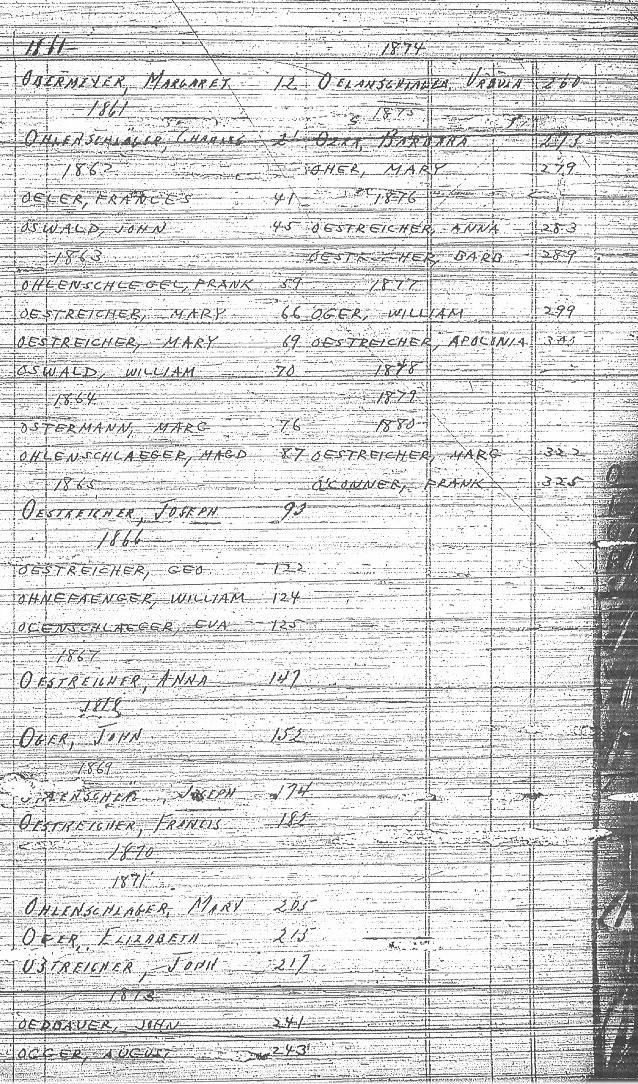 1861
OBERMEYER, MARGARET 12
1861
OHLENSCHLÄGER, CHARLES 21
1862
OELER, FRANCES 41
OSWALD, JOHN 45
1863
OHLENSCHLEGEL, FRANK 59
OESTREICHER, MARY 66
OESTREICHER, MARY 69
OSWALD, WILLIAM 70
1864
OSTERMANN, MARG 76
OHLENSCHLAEGER, MAGD 87
1865
OESTREICHER, JOSEPH 93
1866
OESTREICHER, GEO 122
OHNEFAENGER, WILLIAM 124
OLENSCHLAEGER, EVA 125
1867
OESTREICHER, ANNA 147
1868
OGER, JOHN 152
1869
JOSEPH 174
OESTREICHER, FRANCIS 185
1870
1871
OHLENSCHLAGER, MARY 205
OGER, ELIZABETH 215
OSTREICHER, JOHN 217
1873
OEDBAUER, JOHN 241
OGGER, AUGUST 243
1874
OELANSCHLAGER, URSULA 260
1875
BARBARA 273
OHER, MARY 279
1876
OESTREICHER, ANNA 283
OESTREICHER, BARB 289
1877
OGER, WILLIAM 299
OESTREICHER, APOLONIA
1878
1879
1880
OESTREICHER, MARG 322
O'CONNER, FRANK 325